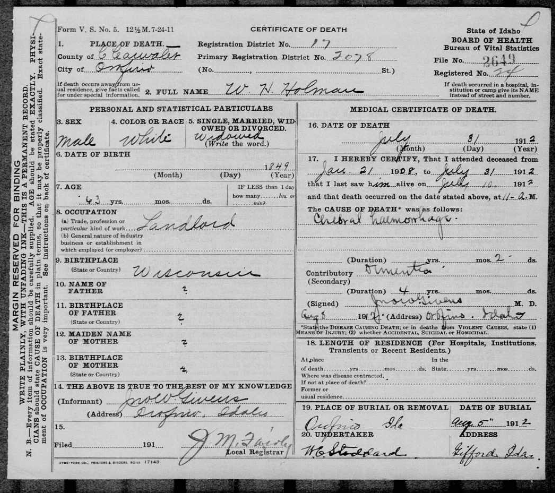 Form V. S. No. 5. 12½ M. 7-24-11
CERTIFICATE OF DEATH
State of Idaho
BOARD OF HEALTH
Bureau of Vital Statistics
File No. 3649
Registered No. 24
1. PLACE OF DEATH.
County of Clearwater
City of Orofino
Registration District No. 87
Primary Registration District No. 2078
(No. St.)
If death occurs away from usual residence, give facts called for under special information.
If death occurred in a hospital, institution or camp give its NAME instead of street and number.
2. FULL NAME W. H. Holman
PERSONAL AND STATISTICAL PARTICULARS
3. SEX
Male
4. COLOR OR RACE
White
5. SINGLE, MARRIED, WIDOWED OR DIVORCED.
Widowed
(Write the word.)
6. DATE OF BIRTH
1849
(Month) (Day) (Year)
7. AGE
63 yrs. mos. ds.
IF LESS than 1 day
8. OCCUPATION
(a) Trade, profession or particular kind of work
Landlord
(b) General nature of industry business or establishment in which employed (or employer)
9. BIRTHPLACE
(State or Country) Wisconsin
10. NAME OF FATHER ?
11. BIRTHPLACE OF FATHER ?
(State or Country)
12. MAIDEN NAME OF MOTHER ?
13. BIRTHPLACE OF MOTHER ?
(State or Country)
14. THE ABOVE IS TRUE TO THE BEST OF MY KNOWLEDGE
(Informant) Jno W Givens
(Address) Orofino, Idaho
15.
Filed 191
Local Registrar
MEDICAL CERTIFICATE OF DEATH.
16. DATE OF DEATH
July 31 1912
(Month) (Day) (Year)
17. I HEREBY CERTIFY, That I attended deceased from
Jan. 21 1908, to July 31 1912
that I last saw him alive on July 1912
and that death occurred on the date stated above, at 11-2 M.
The CAUSE OF DEATH was as follows:
Cerebral haemorrhage.
(Duration) yrs. mos. 2 ds.
Contributory Dementia
(Secondary)
(Duration) 4 yrs. mos. ds.
(Signed) Jno W Givens M. D.
(Address) Orofino, Idaho
*State the DISEASE CAUSING DEATH, or in deaths from VIOLENT CAUSES, state (1) MEANS OF INJURY; (2) whether ACCIDENTAL, SUICIDAL or HOMICIDAL.
18. LENGTH OF RESIDENCE (For Hospitals, Institutions, Transients or Recent Residents.)
At place of death yrs. mos. ds. State yrs. mos. ds.
Where was disease contracted,
If not at place of death?
Former or usual residence
19. PLACE OF BURIAL OR REMOVAL
Orofino Ida
DATE OF BURIAL
Aug 5 1912
20. UNDERTAKER
W E Stoddard
ADDRESS
Gifford Ida.
MARGIN RESERVED FOR BINDING
WRITE PLAINLY, WITH UNFADING INK—THIS IS A PERMANENT RECORD.
N. B.—Every item of information should be carefully supplied. AGE should be stated EXACTLY. PHYSICIANS should state CAUSE OF DEATH in plain terms, so that it may be properly classified. Exact statement of OCCUPATION is very important. See instructions on back of certificate.